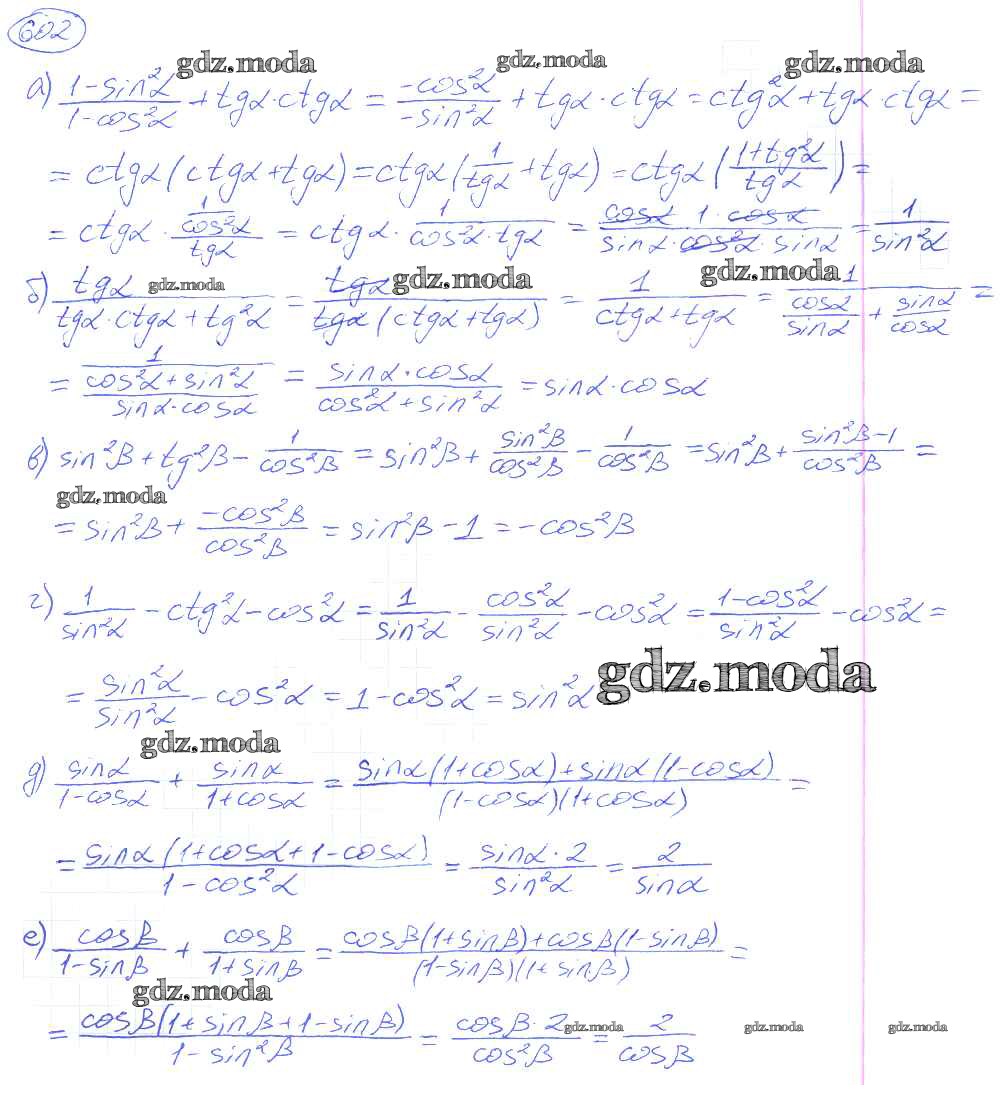 602
gdz.moda gdz.moda gdz.moda
а) (1-sin²α)/(1-cos²α) + tgα·ctgα = (-cos²α)/(-sin²α) + tgα·ctgα = ctg²α + tgα ctgα =
= ctgα(ctgα+tgα) = ctgα(1/tgα + tgα) = ctgα((1+tg²α)/tgα) =
= ctgα · (1/cos²α)/tgα = ctgα · 1/(cos²α·tgα) = (cosα · 1 · cosα)/(sinα·cos²α·sinα) = 1/sin²α
gdz.moda gdz.moda gdz.moda
б) tgα/(tgα·ctgα + tg²α) = tgα/(tgα(ctgα+tgα)) = 1/(ctgα+tgα) = 1/(cosα/sinα + sinα/cosα) =
= 1/((cos²α+sin²α)/(sinα·cosα)) = (sinα·cosα)/(cos²α+sin²α) = sinα·cosα
в) sin²β + tg²β - 1/cos²β = sin²β + sin²β/cos²β - 1/cos²β = sin²β + (sin²β-1)/cos²β =
gdz.moda
= sin²β + (-cos²β)/cos²β = sin²β - 1 = -cos²β
г) 1/sin²α - ctg²α - cos²α = 1/sin²α - cos²α/sin²α - cos²α = (1-cos²α)/sin²α - cos²α =
= sin²α/sin²α - cos²α = 1 - cos²α = sin²α
gdz.moda
gdz.moda
д) sinα/(1-cosα) + sinα/(1+cosα) = (sinα(1+cosα)+sinα(1-cosα))/((1-cosα)(1+cosα)) =
= (sinα(1+cosα+1-cosα))/(1-cos²α) = (sinα·2)/sin²α = 2/sinα
е) cosβ/(1-sinβ) + cosβ/(1+sinβ) = (cosβ(1+sinβ)+cosβ(1-sinβ))/((1-sinβ)(1+sinβ)) =
gdz.moda
= (cosβ(1+sinβ+1-sinβ))/(1-sin²β) = (cosβ·2)/cos²β = 2/cosβ
gdz.moda gdz.moda gdz.moda